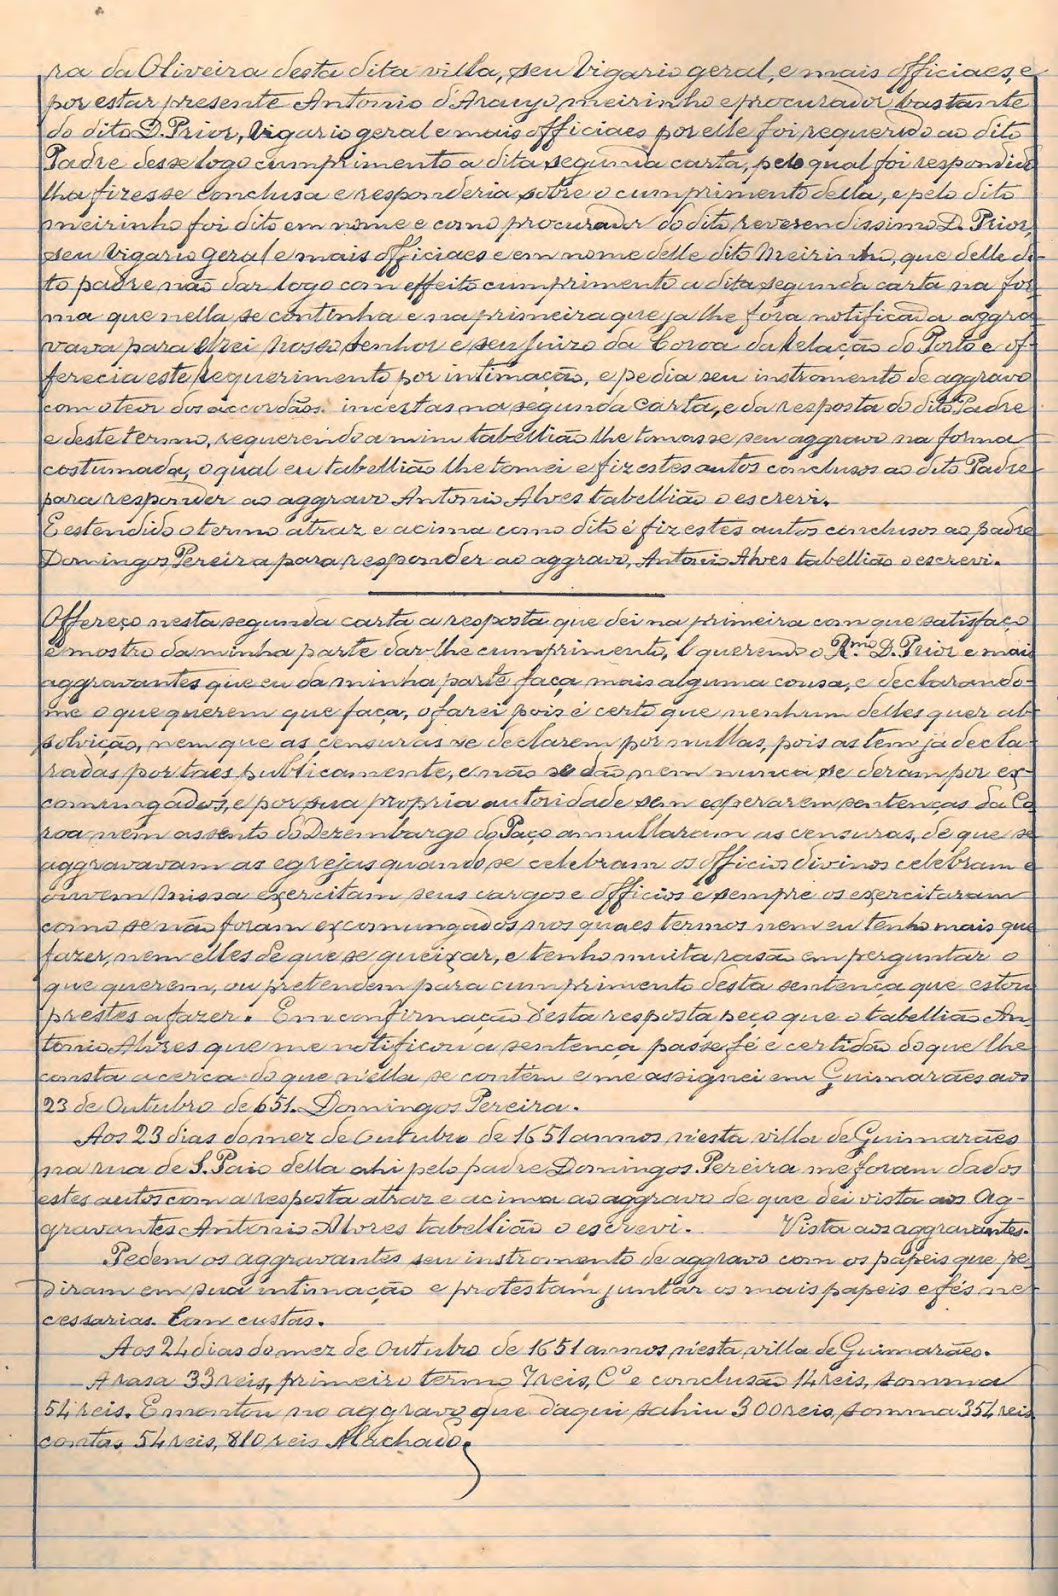 ra da Oliveira desta dita villa, seu Vigario geral, e mais officiaes, e
por estar presente Antonio d'Araujo meirinho e procurador bastante
do dito D. Prior, Vigario geral e mais officiaes por elle foi requerido ao dito
Padre desse logo cumprimento a dita segunda carta, pelo qual foi respondido
lha fizesse conclusa e responderia sobre o cumprimento della, e pelo dito
meirinho foi dito em nome e como procurador do dito reverendissimo D. Prior,
seu Vigario geral e mais officiaes e em nome delle dito Meirinho, que delle di-
to padre não dar logo com effeito cumprimento a dita segunda carta na for-
ma que nella se continha e na primeira que ja lhe fora notificada aggra-
vava para elrei Nosso Senhor e seu Juizo da Coroa da Relação do Porto e of-
ferecia este requerimento por intimação, e pedia seu instromento de aggravo
com o teor dos accordãos incestas na segunda carta, e da resposta do dito Padre
e deste termo, requerendo a mim tabellião lhe tomasse seu aggravo na forma
costumada, o qual eu tabellião lhe tomei e fiz estes autos conclusos ao dito Padre
para responder ao aggravo Antonio Alves tabellião o escrevi.
E estendido o termo atraz e acima como dito é fiz estes autos conclusos ao padre
Domingos Pereira para responder ao aggravo, Antonio Alves tabellião o escrevi.
Offereço nesta segunda carta a resposta que dei na primeira com que satisfaço
e mostro da minha parte dar-lhe cumprimento, E querendo o Rmo D. Prior e mais
aggravantes que eu da minha parte faça mais alguma cousa, e declarando-
me o que querem que faça, o farei pois é certo que nenhum delles quer ab-
solvição, nem que as censuras se declarem por nullas, pois as tem já decla-
radas por taes publicamente, e não se dão nem nunca se deram por ex-
comungados, e por sua propria autoridade sem esperarem sentenças da Co-
roa nem assento do Dezembargo do Paço annullaram as censuras, de que se
aggravavam as egrejas quando se celebram os officios divinos celebram e
ouvem missa exercitam seus cargos e officios e sempre os exercitaram
como se não foram excomungados, nos quaes termos nem eu tenho mais que
fazer, nem elles de que se queixar, e tenho muita rasão em perguntar o
que querem, ou pretendem para cumprimento desta sentença que estou
prestes a fazer. Em confirmação d'esta resposta peço que o tabellião An-
tonio Alvres que me notificou a sentença passe fé e certidão do que lhe
consta acerca do que n'ella se contém e me assignei em Guimarães aos
23 de Outubro de 651. Domingos Pereira.
Aos 23 dias do mez de Outubro de 1651 annos n'esta villa de Guimarães
na rua de S. Paio della ahi pelo padre Domingos Pereira me foram dados
estes autos com a resposta atraz e acima ao aggravo de que dei vista aos Ag-
gravantes Antonio Alvres tabellião o escrevi. Vista aos aggravantes.
Pedem os aggravantes seu instromento de aggravo com os papeis que pe-
diram em sua intimação e protestam juntar os mais papeis e fés ne-
cessarias. Com custas.
Aos 24 dias do mez de Outubro de 1651 annos n'esta villa de Guimarães.
A rasa 33 reis, primeiro termo 7 reis, Co e conclusão 14 reis, somma
54 reis. E montou no aggravo que d'aqui sahiu 300 reis, somma 354 reis
contas 54 reis, 810 reis Machado.